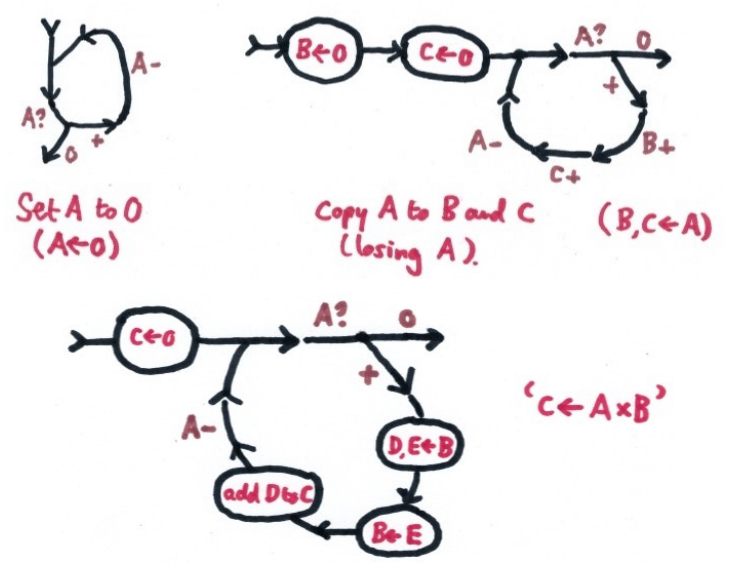 A-
A?
0
+
Set A to 0
(A←0)
B←0
C←0
A?
0
+
B+
C+
A-
Copy A to B and C
(losing A).
(B,C←A)
C←0
A?
0
+
D,E←B
B←E
add D to C
A-
'C←A×B'